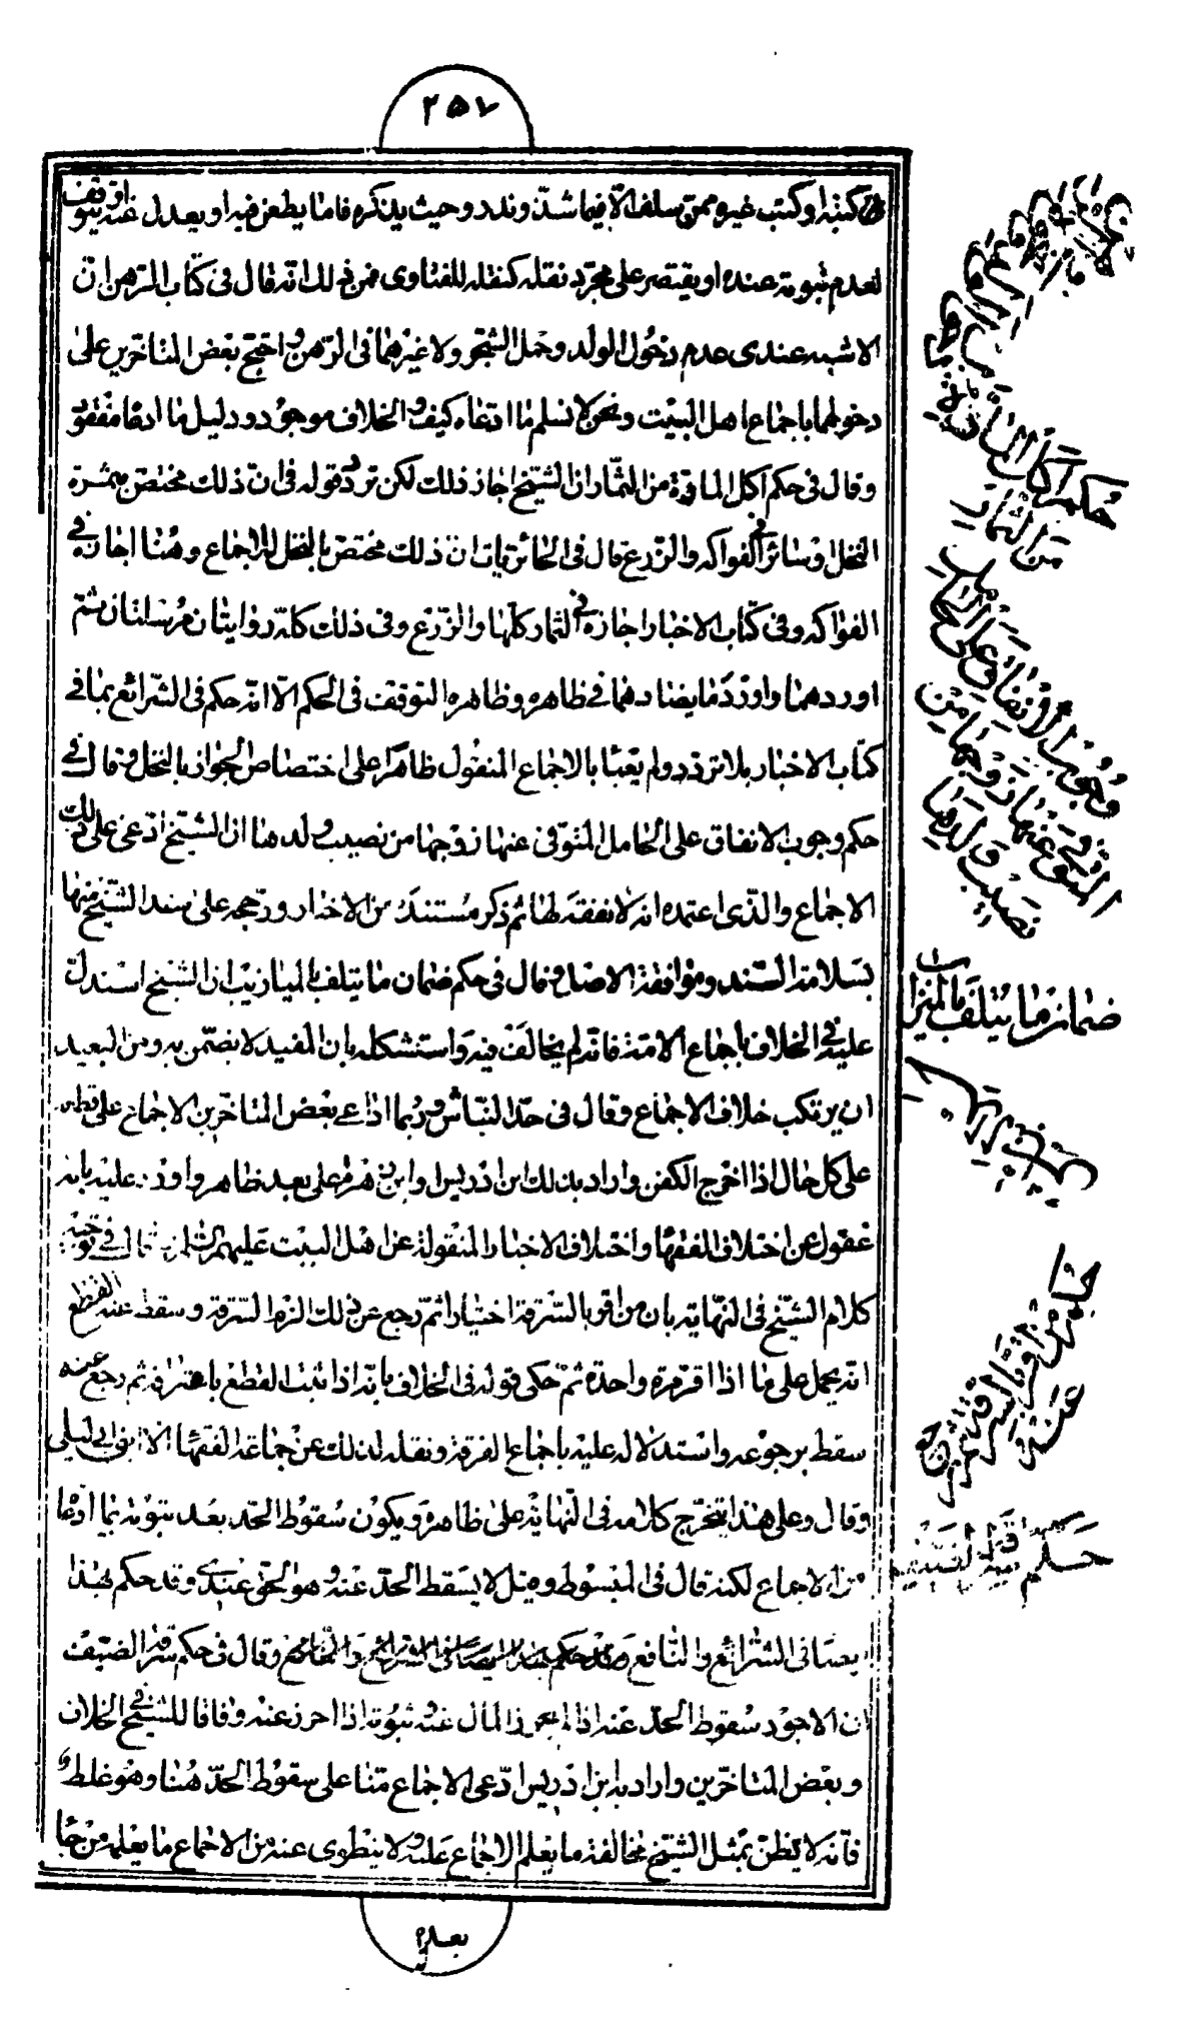 ٢٥٧
كتبه او كتب غيره ممن سلف الا فيما شذ وندر وحيث يذكره فاما يطعن فيه او يعدل عنه او يتوقف
لعدم ثبوته عنده او يقتصر على مجرد نقله كنقله للفتاوى فمن ذلك انه قال فى كتاب الرهن ان
الاشبه عندى عدم دخول الولد وحمل الشجر ولا غيرهما فى الرهن واحتج بعض المتاخرين على
دخولهما باجماع اهل البيت ونحن لا نسلم ما ادعاه كيف والخلاف موجود ودليل ما ادعاه مفقود
وقال فى حكم اكل المارة من الثمار ان الشيخ اجاز ذلك لكن تردد قوله فى ان ذلك مختص بثمرة
النخل او سائر الفواكه والزرع قال فى الحائريات ان ذلك مختص بالنخل للاجماع وهنا اجازه فى
الفواكه وفى كتاب الاخبار اجازه فى الثمار كلها والزرع وفى ذلك كله روايتان مرسلتان ثم
اوردهما واورد ما يضادهما فى ظاهره وظاهره التوقف فى الحكم الا انه حكم فى الشرائع بما فى
كتاب الاخبار بلا تردد ولم يعبأ بالاجماع المنقول ظاهرا على اختصاص الجواز بالنخل وقال فى
حكم وجوب الانفاق على الحامل المتوفى عنها زوجها من نصيب ولدها ان الشيخ ادعى على ذلك
الاجماع والذى اعتمده انه لا نفقة لها ثم ذكر مستنده من الاخبار ورجحه على سند الشيخ منها
بسلامة السند وموافقة الاصل وقال فى حكم ضمان ما يتلف بالميازيب ان الشيخ استدل
عليه فى الخلاف باجماع الامة فانه لم يخالف فيه واستشكله بان المفيد لا يضمن به ومن البعيد
ان يرتكب خلاف الاجماع وقال فى حد النباش وربما ادعى بعض المتاخرين الاجماع على قطعه
على كل حال اذا اخرج الكفن واراد بذلك ابن ادريس وابن زهرة على بعد ظاهر واورد عليه بانه
غفول عن اختلاف الفقهاء واختلاف الاخبار المنقولة عن اهل البيت عليهم السلام وقال فى توجيه
كلام الشيخ فى النهاية بان من اقر بالسرقة اختيارا ثم رجع عن ذلك الزم السرقة وسقط عنه القطع
انه يحمل على ما اذا اقر مرة واحدة ثم حكى قوله فى الخلاف بانه اذا ثبت القطع باعترافه ثم رجع عنه
سقط برجوعه واستدلاله عليه باجماع الفرقة ونقله لذلك عن جماعة الفقهاء الا ابن ابى ليلى
وقال وعلى هذا يتخرج كلامه فى النهاية على ظاهره ويكون سقوط الحد بعد ثبوته بما ادعاه
من الاجماع لكنه قال فى المبسوط وقيل لا يسقط الحد عنه وهو الحق عندى وقد حكم بهذا
ايضا فى الشرائع والنافع وقال فى حكم سرقة الضيف
ان الاجود سقوط الحد عنه اذا لم يحرز المال عنه وثبوته اذا احرز عنه وفاقا للشيخ فى الخلاف
وبعض المتاخرين واراد به ابن ادريس ادعى الاجماع منا على سقوط الحد هنا وهو غلط
فانه لا يظن بمثل الشيخ مخالفة ما يعلم الاجماع عليه ولا ينطوى عنه من الاجماع ما يعلمه من جاء
بعده
حكم اكل المارة
من الثمار
وجوب الانفاق على الحامل
المتوفى عنها زوجها من
نصيب ولدها
ضمان ما يتلف بالميزاب
حكم من اقر بالسرقة ثم رجع
عنه
حكم سرقة الضيف